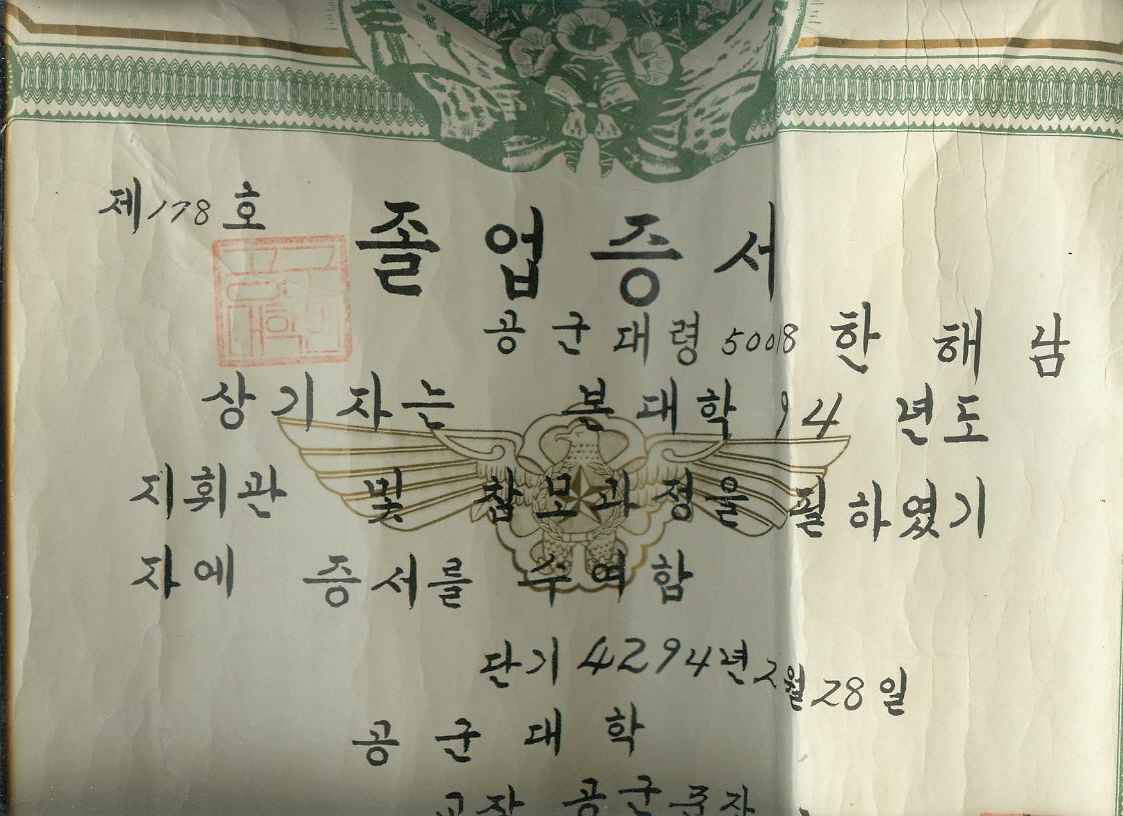 제178호
졸업증서
공군대령 50018 한해남
상기자는 본대학 94년도
지휘관 및 참모과정을 필하였기
자에 증서를 수여함
단기 4294년 2월 28일
공군대학
교장 공군준장